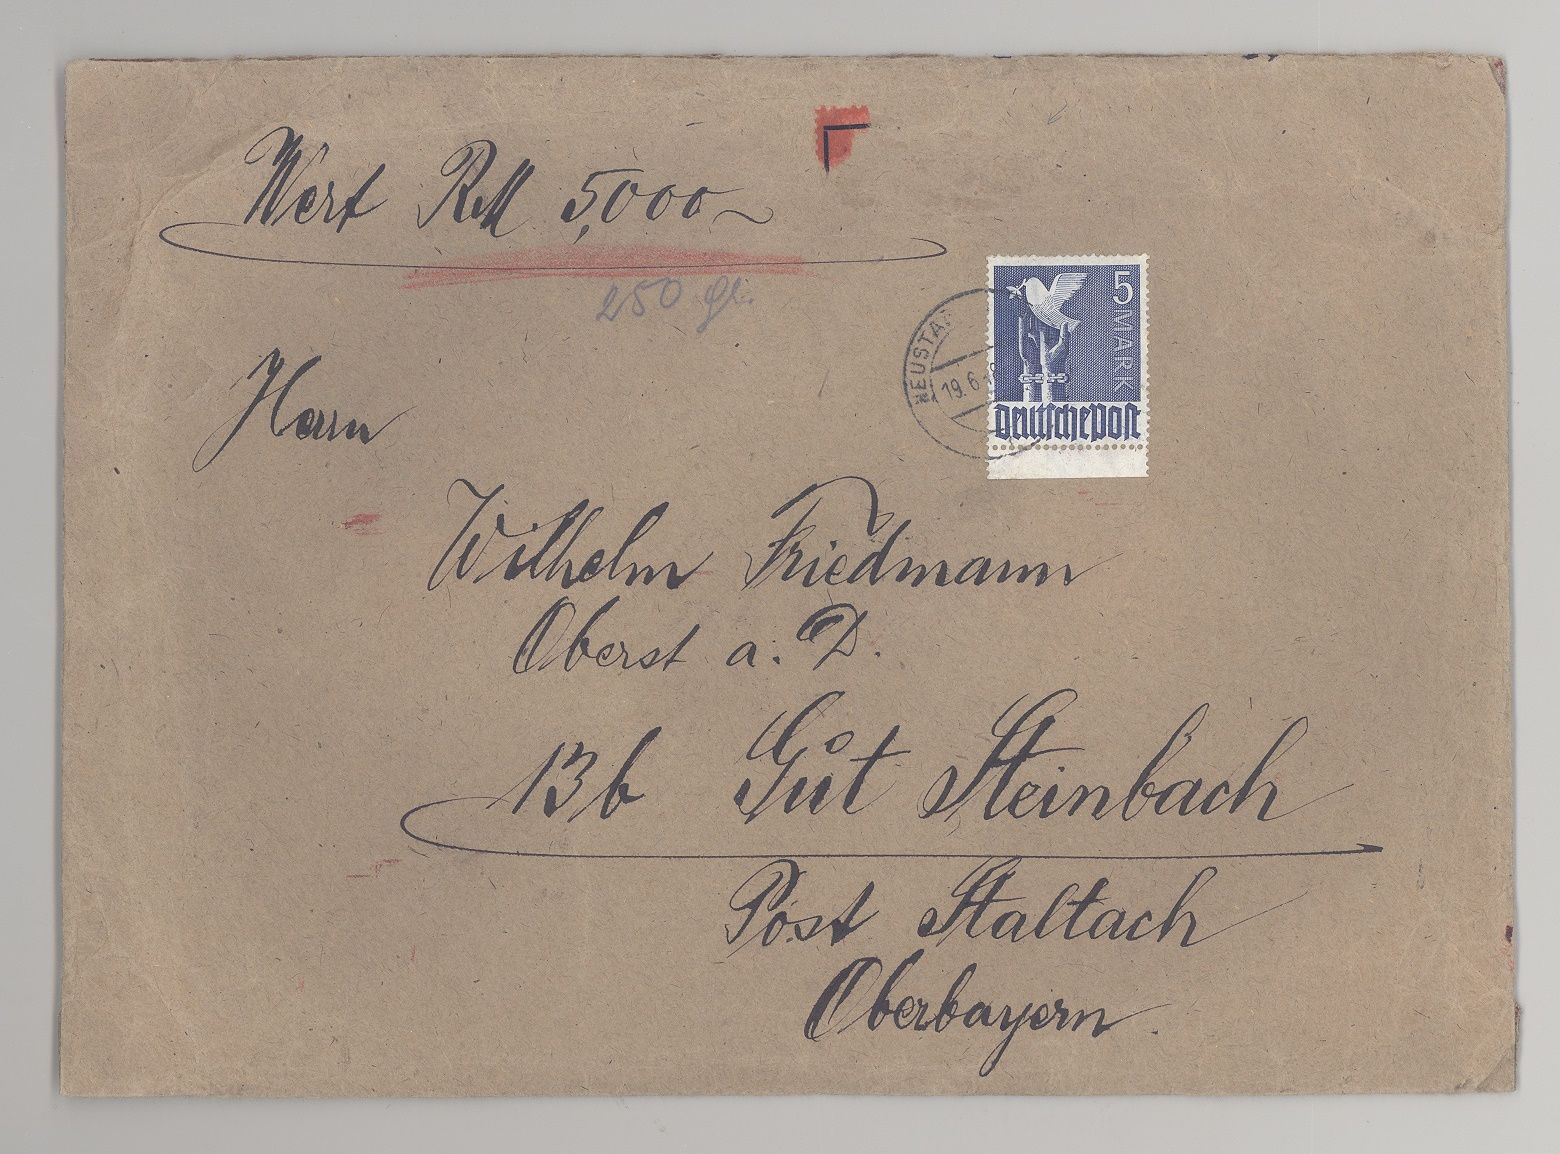 Wert RM 5,000
250 gr.
5 MARK
NEUSTA
19.6.48
deutsche post
Herrn
Wilhelm Friedmann
Oberst a. D.
13b Gut Steinbach
Post Staltach
Oberbayern.